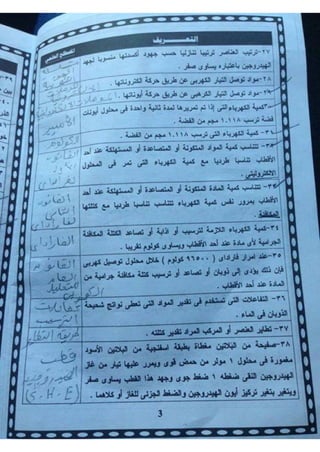 المصطلح العلمي
التعـــريـــف
٢٧-ترتيب العناصر ترتيبا تنازليا حسب جهود أكسدتها منسوبا لجهد
الهيدروجين باعتباره يساوى صفر .
٢٨-مواد توصل التيار الكهربى عن طريق حركة الكتروناتها .
٢٩-مواد توصل التيار الكهربى عن طريق حركة
٣٠-كمية الكهرباء التى إذا تم تمريرها لمدة ثانية واحدة فى محلول أيونات
فضة ترسب ١.١١٨ مجم من الفضة .
٣١-كمية الكهرباء التى ترسب ١.١١٨ مجم من الفضة .
٣٢-تتناسب كمية المواد المتكونة أو المتصاعدة أو المستهلكة عند أحد
الأقطاب تناسبا طرديا مع كمية الكهرباء التى تمر فى المحلول
الالكتروليتى .
٣٣-تتناسب كمية المادة المتكونة أو المتصاعدة أو المستهلكة عند أحد
الأقطاب بمرور نفس كمية الكهرباء تتناسب تناسبا طرديا مع كتلتها
المكافئة .
٣٤-كمية الكهرباء اللازمة لترسيب أو اذابة أو تصاعد الكتلة المكافئة
الجرامية لأى مادة عند أحد الأقطاب ويساوى كولوم تقريبا .
٣٥-عند امرار فاراداى (٩٦٥٠٠ كولوم) خلال محلول توصيل كهربى
فإن ذلك يؤدى إلى ذوبان أو تصاعد أو ترسيب كتلة مكافئة جرامية من
المادة عند أحد الأقطاب .
٣٦- التفاعلات التى تستخدم فى تقدير المواد التى تعطى نواتج شحيحة
الذوبان فى الماء .
٣٧- تطاير العنصر أو المركب المراد تقدير كتلته .
٣٨-صفيحة من البلاتين مغطاة بطبقة اسفنجية من البلاتين الأسود
مغمورة فى محلول ١ مولر من حمض قوى ويمرر عليها تيار من غاز
الهيدروجين النقى ضغطه ١ ضغط جوى وجهد هذا القطب يساوى صفر
ويتغير بتغير تركيز أيون الهيدروجين والضغط الجزئى للغاز أو كلاهما .
الأمبير
الكولوم
القانون
الأول
لفاراداى
القانون
الثانى
لفاراداى
الفاراداى
القانون
العام
للتحليل
الكهربى
تفاعلات
الترسيب
طريقة التطاير
قطب
الهيدروجين
(S.H.E)
3